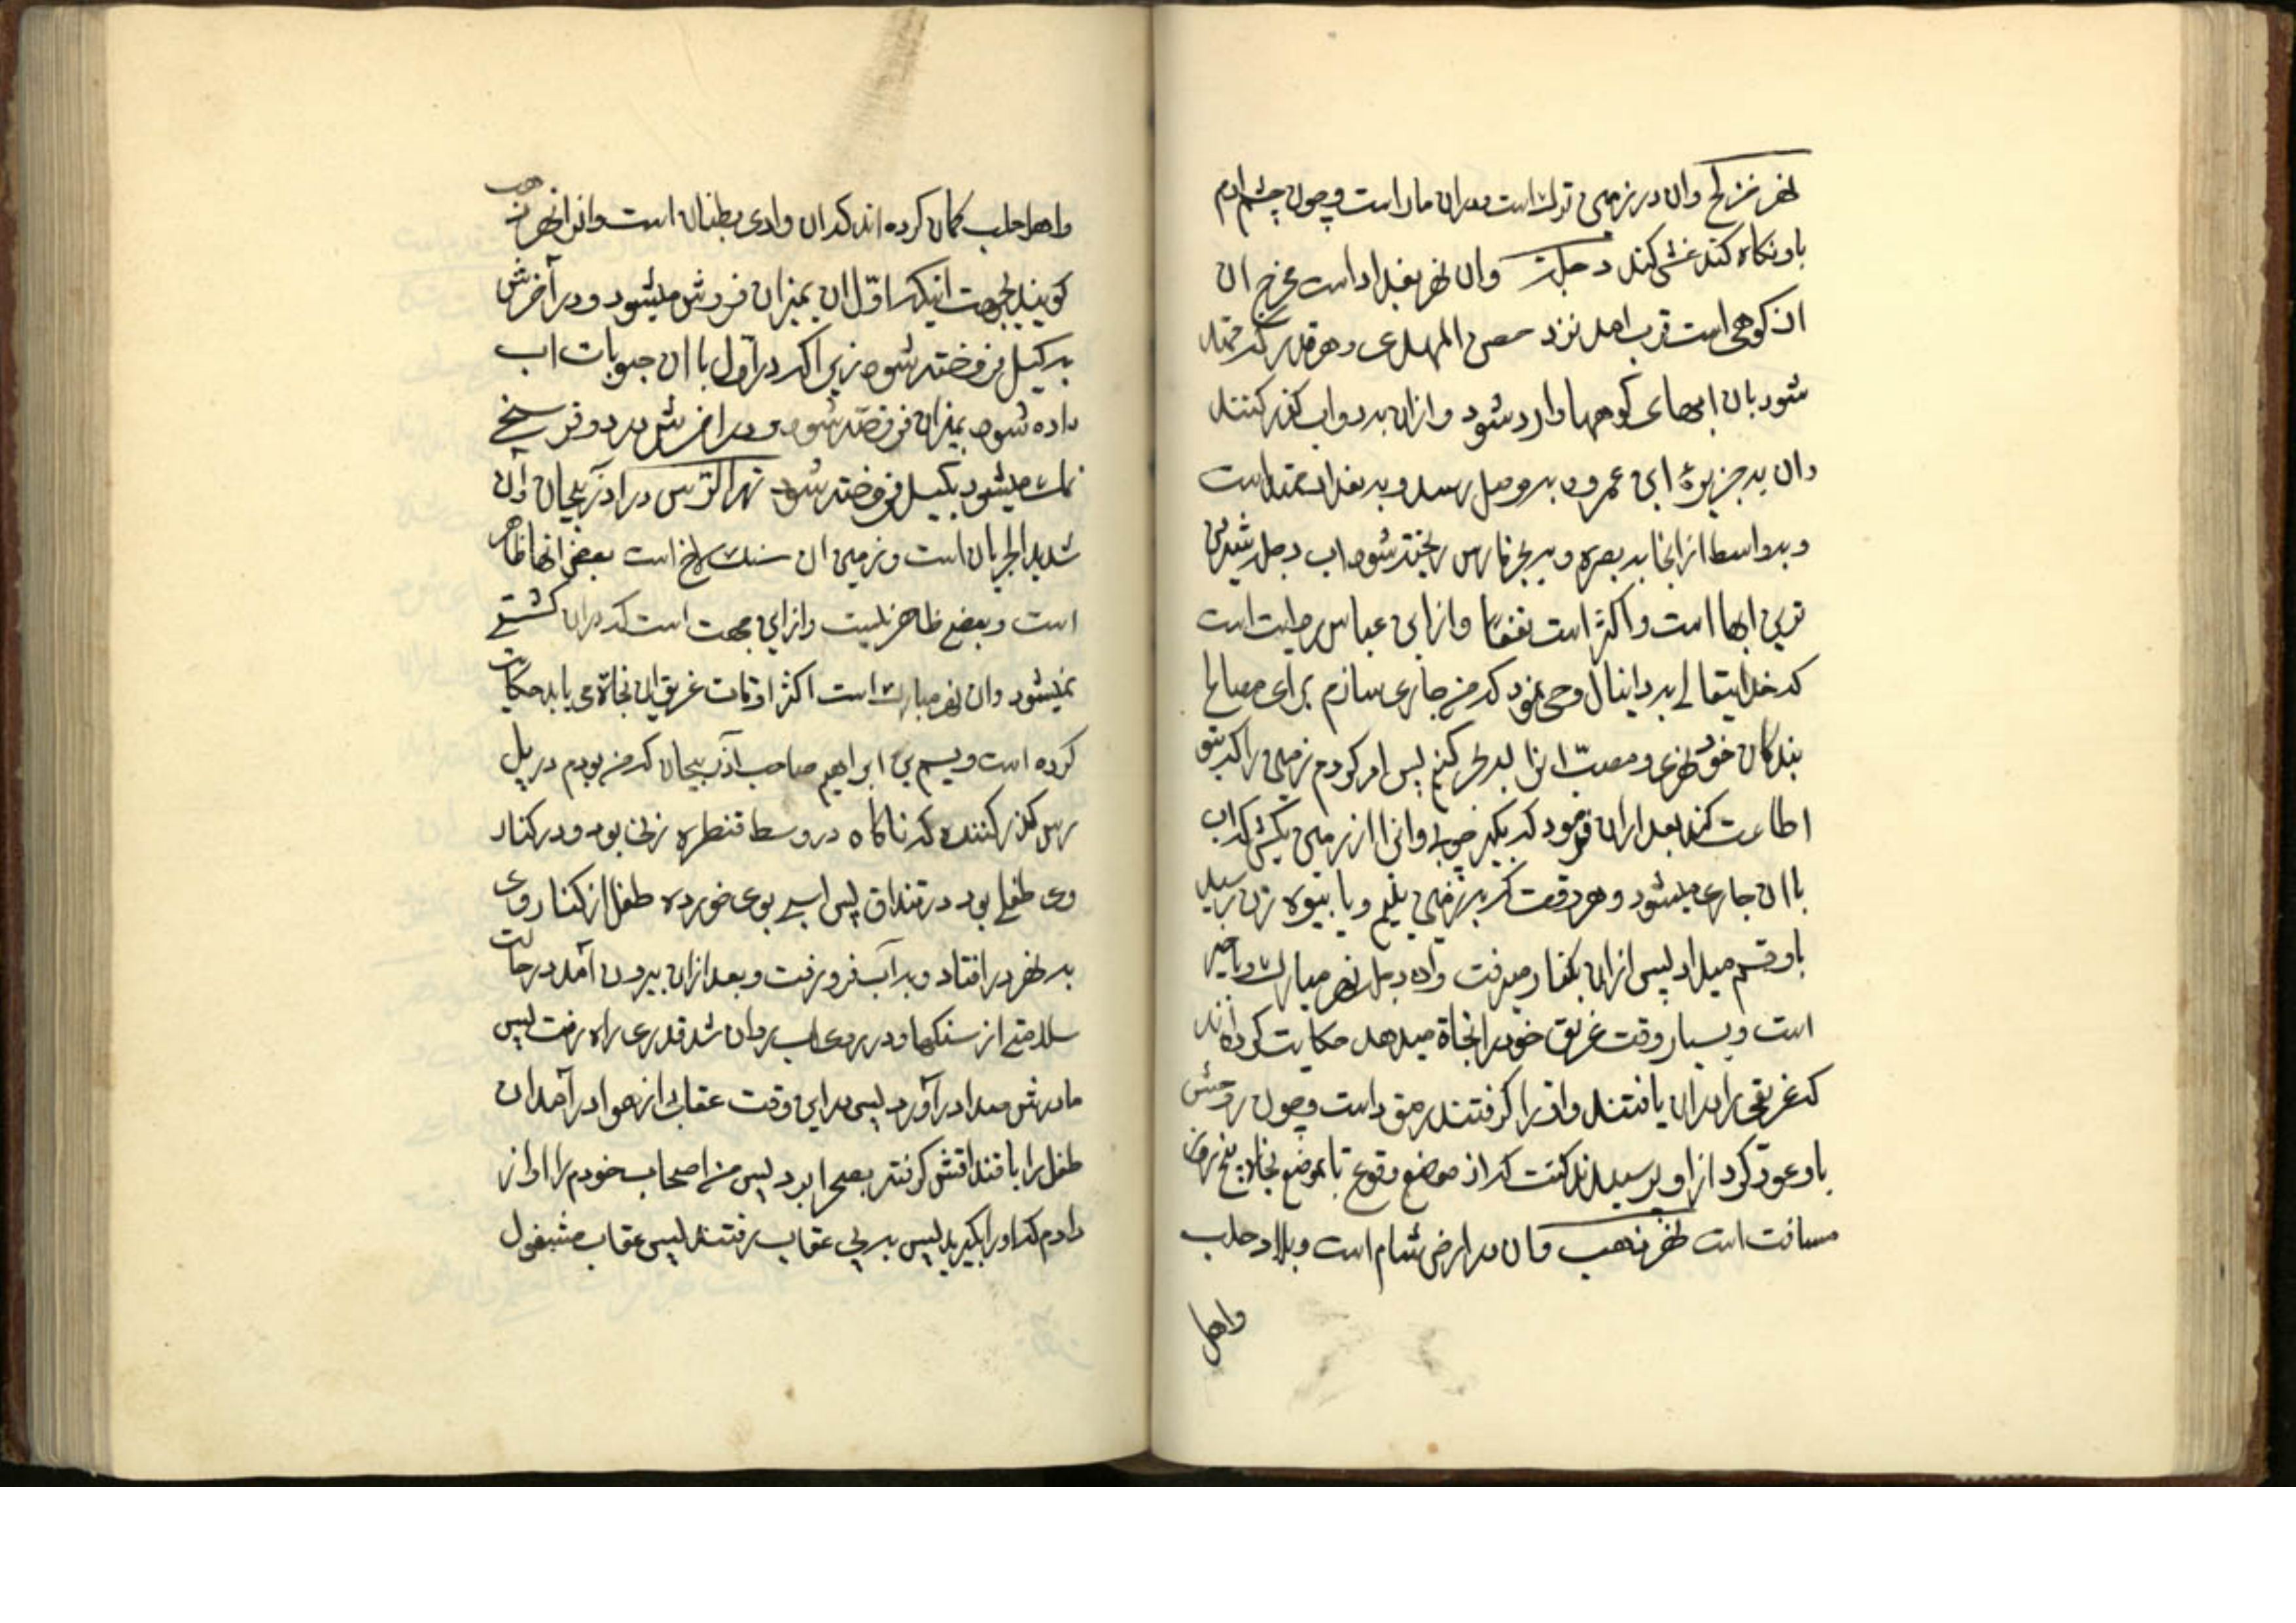 نهر خزلج وان در زمین ترك است در ان ماران است و چون چشم ادم
باو نگاه کند غشی کند دجله وان نهر بغداد است مخرج ان
ان کوهی است قرب امد نزد حصن المهدی و هر قدر که ممتد
شود بان ابهای کوهها وارد شود و ازان بدواب گذر کنند
وان به جزیرهٔ ابن عمر و به موصل رسد و به بغداد ممتد است
و به واسط از انجا به بصره و به بحر فارس ریخته شود اب دجله شیرین
ترین ابها است و اکثر است نفعا و از ابن عباس روایت است
که خدایتعالی به دانیال وحی نمود که من جاری سازم برای مصالح
بندگان خود نهری و مصب انرا به بحر کنم پس امر کردم زمین را که بتو
اطاعت کند بعد ازان فرمود که بگیر چوبی وانرا از زمین بکش که اب
با ان جاری میشود و هر وقت که بزمین یتیم و یا بیوه زن رسید
باو قسم میداد پس ازان بکنار میرفت واین دجله نهر مبارك و با خیر
است و بسیار وقت غریق خود را نجاة میدهد حکایت کرده‌اند
که غریقی را دران یافتند و او را گرفتند رمق داست و چون روحش
باو عود کرد از او پرسیدند گفت که از موضع وقوع تا بموضع نجاة پنج روز
مسافت است نهر ذهب وان در ارض شام است و بلاد حلب
واهل
واهل حلب گمان کرده‌اند که ان وادی بطنان است وانرا نهر ذهب
گویند بجهت اینکه اوّل ان بمیزان فروش میشود و در آخرش
به کیل فروخته شود زیرا که در اول با ان حبوبات اب
داده شود بمیزان فروخته شود و در اخرش در دو فرسخ
نمك میشود بکیل فروخته شود نهر الرّس در اذربیجان وآن
شدید الجریان است و زمین ان سنك لاخ است بعض انها ظاهر
است و بعضی ظاهر نیست و ازاین جهت است که دران کشتی
نمیشود وان نهر مبارك است اکثر اوقات غریق ان نجاة می یابد حکایت
کرده است ویسم بن ابراهیم صاحب آذربیجان که من بودم در پل
رس گذر کننده که ناگاه در وسط قنطره زنی بود و در کنار
وی طفلی بود در قنداق پس اسبی بوی خورده طفل از کنار وی
به نهر در افتاد و به آب فرو رفت و بعد ازان بیرون آمد در حالت
سلامتی از سنگها و در روی اب روان شد قدری راه رفت پس
مادرش صدا در آورد پس دراین وقت عقاب از هوا در آمد ان
طفل را با قنداقش گرفته بصحرا برد پس من اصحاب خودم را اواز
دادم که او را بگیرید پس به پی عقاب رفتند پس عقاب مشغول